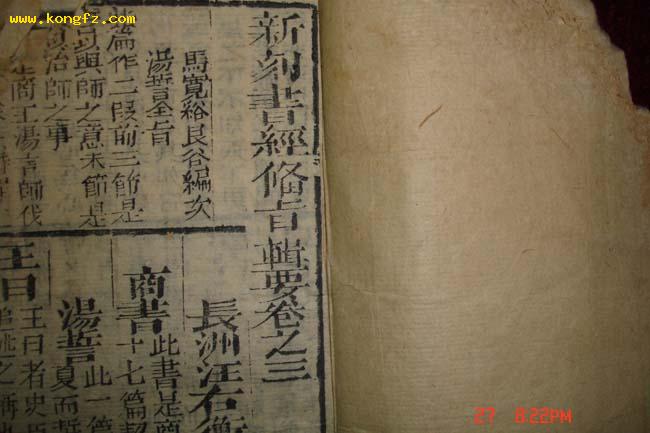 www.kongfz.com
新刻書經備旨輯要卷之三
馬寬裕良谷編次
湯誓全旨
此篇作二段前三節是
興師之意末節是
治師之事
商王湯言師伐
長洲汪右衡
商書
此書是商
十七篇
湯誓
此一篇
夏而誓
王曰
王曰者史臣
27 8:22PM